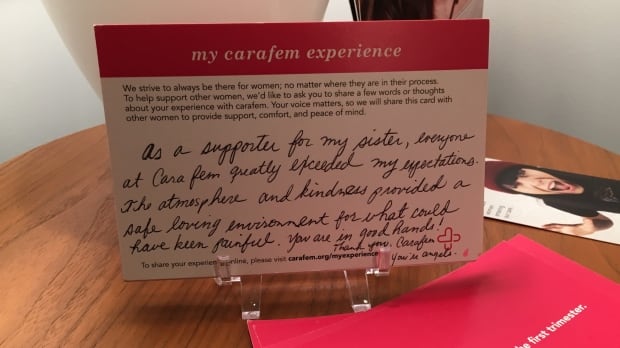 my carafem experience
We strive to always be there for women; no matter where they are in their process.
To help support other women, we'd like to ask you to share a few words or thoughts
about your experience with carafem. Your voice matters, so we will share this card with
other women to provide support, comfort, and peace of mind.
As a supporter for my sister, everyone
at Cara fem greatly exceeded my expectations.
The atmosphere and kindness provided a
safe loving environment for what could
have been painful. You are in good hands!
Thank you, Carafem
You're angels.
To share your experience online, please visit carafem.org/myexperience
the first trimester.